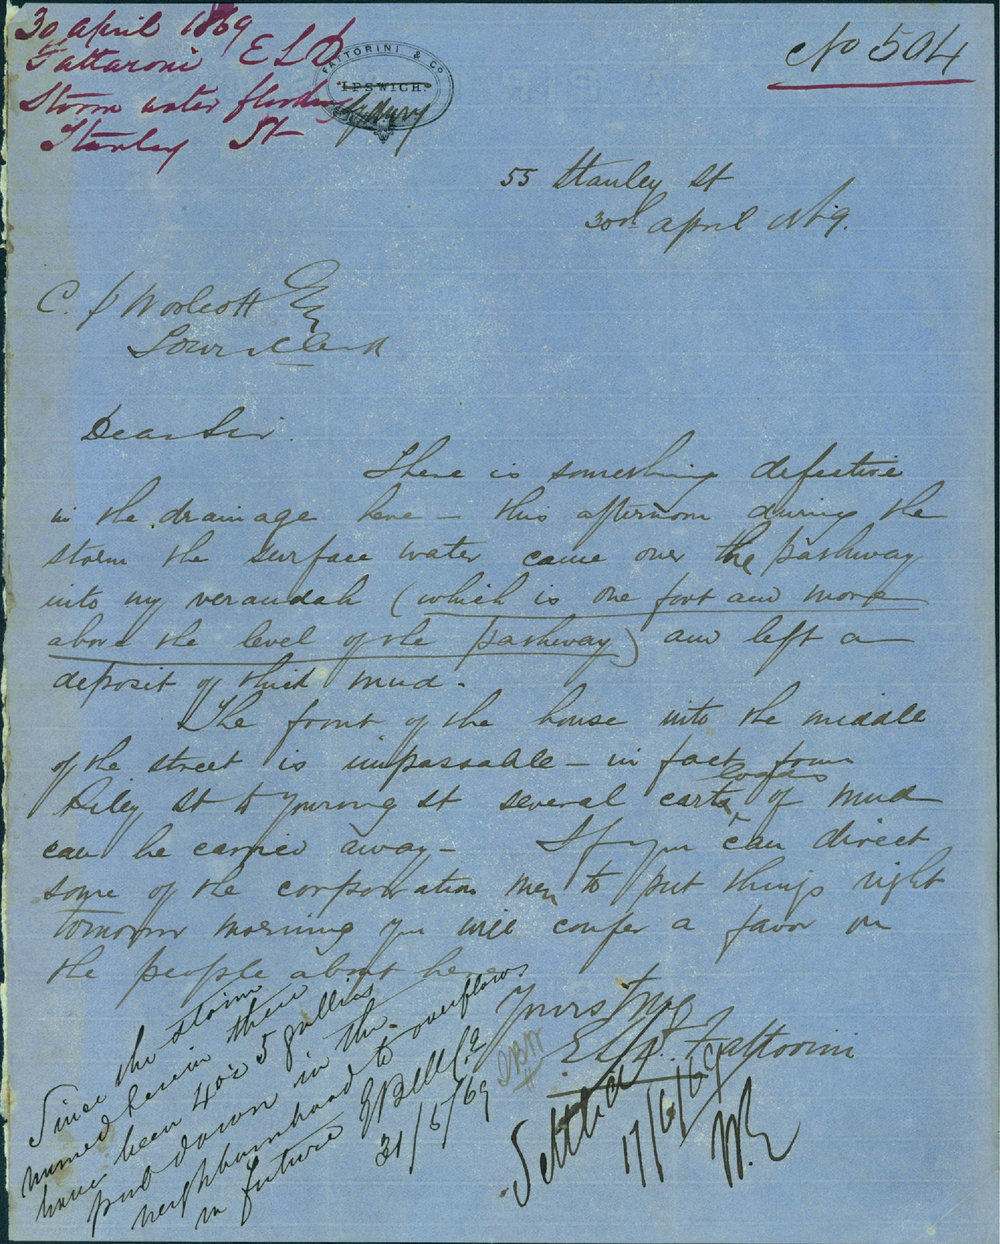 30 April 1869
Fattaroni E L D
Storm water flooding
Stanley St
FATTORINI & Co.
IPSWICH.
Sydney
No 504
55 Stanley St
30th April 1869.
C. H Woolcott Esq
Town Clerk
Dear Sir.
There is something defective
in the drainage here - this afternoon during the
storm the surface water came over the pathway
into my verandah (which is one foot and more
above the level of the pathway) and left a
deposit of thick mud.
The front of the house into the middle
of the street is impassable - in fact from
Riley St to Yurong St several cart loads of mud
can be carried away - If you can direct
some of the corporation men to put things right
tomorrow morning you will confer a favor on
the people about here
Yours truly
E. L. D. Fattorini
Since the storm
named herein there
have been 4 or 5 gullies
put down in the
neighbourhood to overflows
in future E Bell C.E
31/5/69
17/6/69